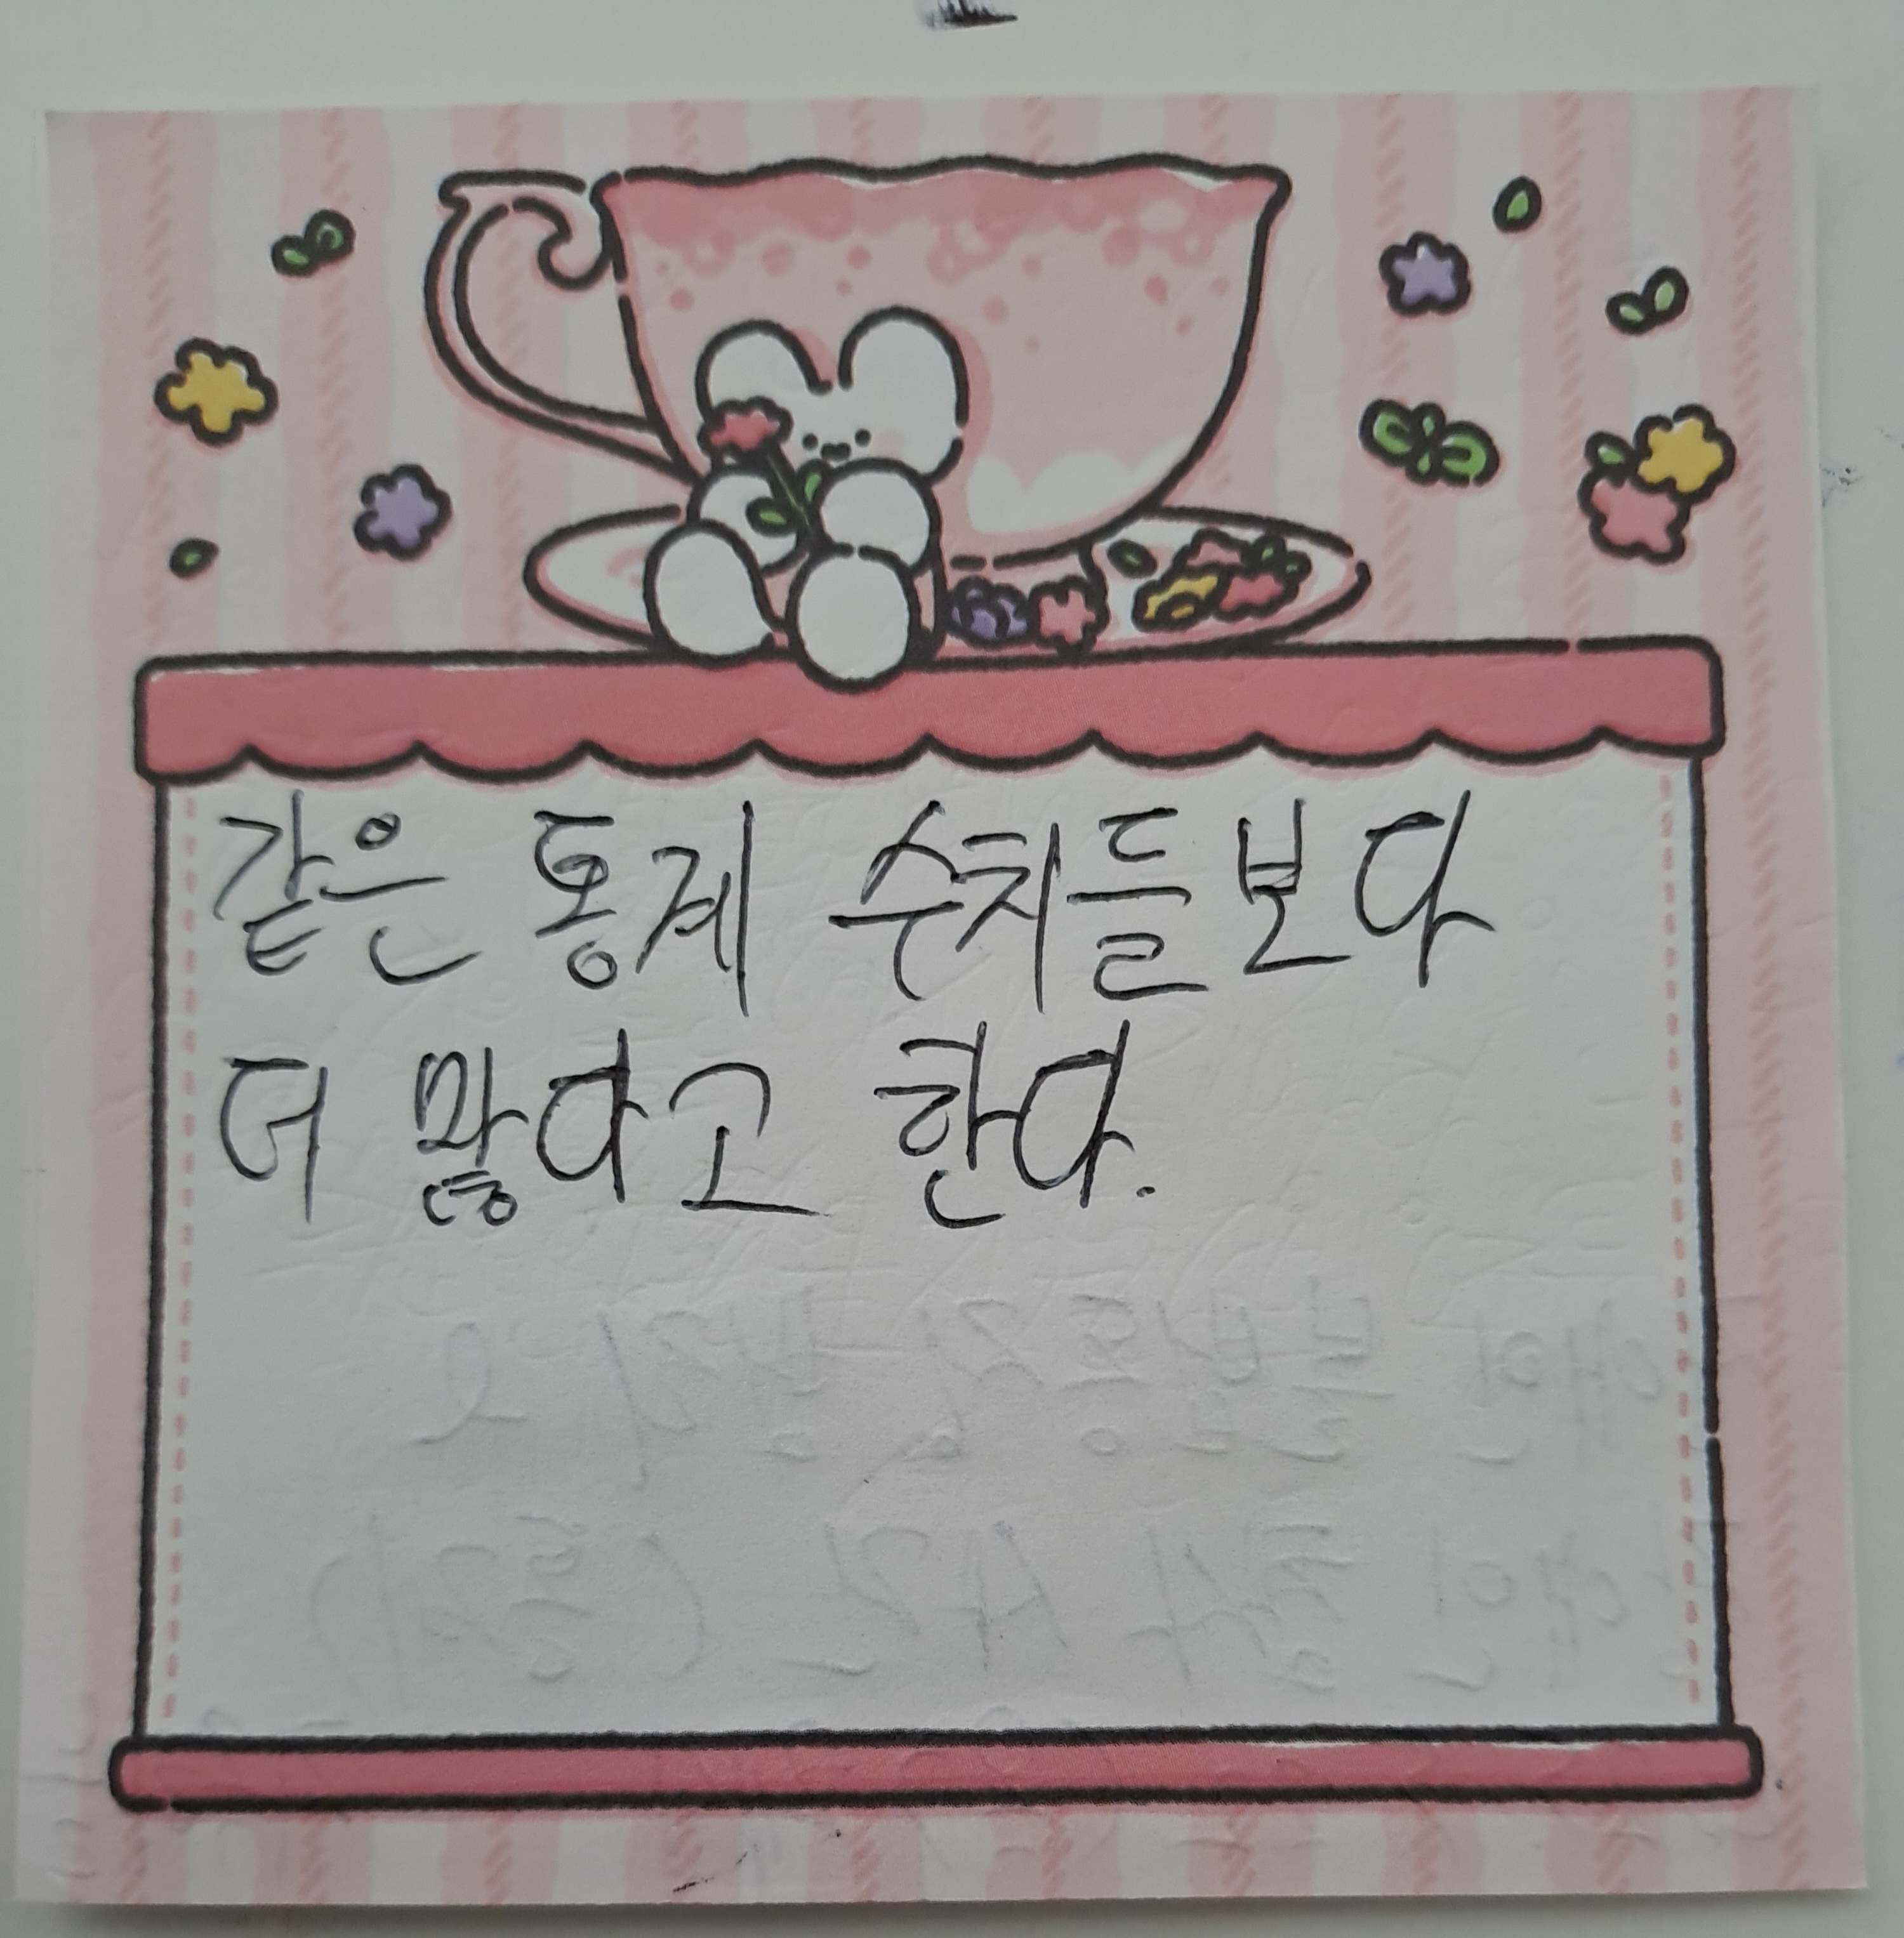 같은 통계 수치들보다
더 많다고 한다.